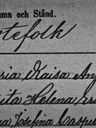 mn och Stånd.
tefolk
ria Kaisa An
ita Helena
na Josefina Caspe